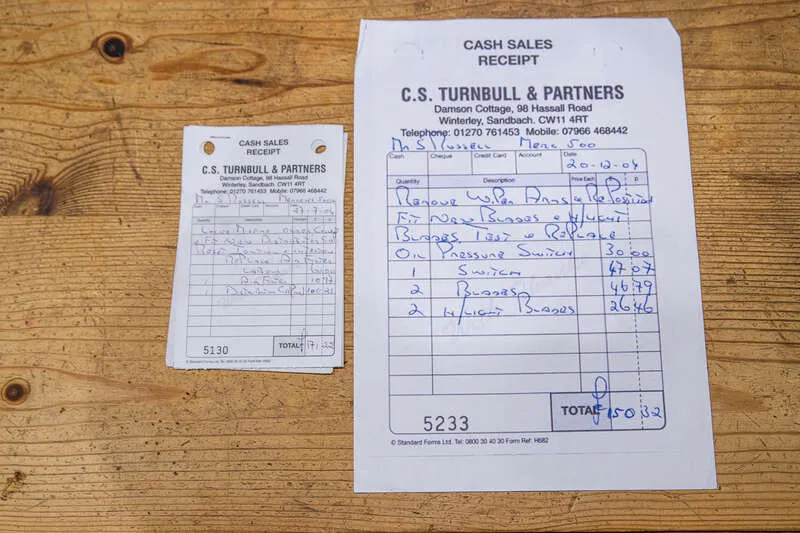 CASH SALES
RECEIPT
C.S. TURNBULL & PARTNERS
Damson Cottage, 98 Hassall Road
Winterley, Sandbach. CW11 4RT
Telephone: 01270 761453 Mobile: 07966 468442
Mr S Russell
27-7-04
Quantity Description
& Fit New Distributor
Air Filter
5130
TOTAL £171.22
© Standard Forms Ltd. Tel: 0800 30 40 30 Form Ref: H682
CASH SALES
RECEIPT
C.S. TURNBULL & PARTNERS
Damson Cottage, 98 Hassall Road
Winterley, Sandbach. CW11 4RT
Telephone: 01270 761453 Mobile: 07966 468442
Mr S Russell Merc 500
Cash Cheque Credit Card Account Date
20-12-04
Quantity Description Price Each £ p
Remove Wiper Arms & Reposition
Fit New Blades & H/Light
Blades, Test & Replace
Oil Pressure Switch 30 00
1 Switch 47 07
2 Blades 46 79
2 H/Light Blades 26 46
5233 TOTAL £150 32
© Standard Forms Ltd. Tel: 0800 30 40 30 Form Ref: H682